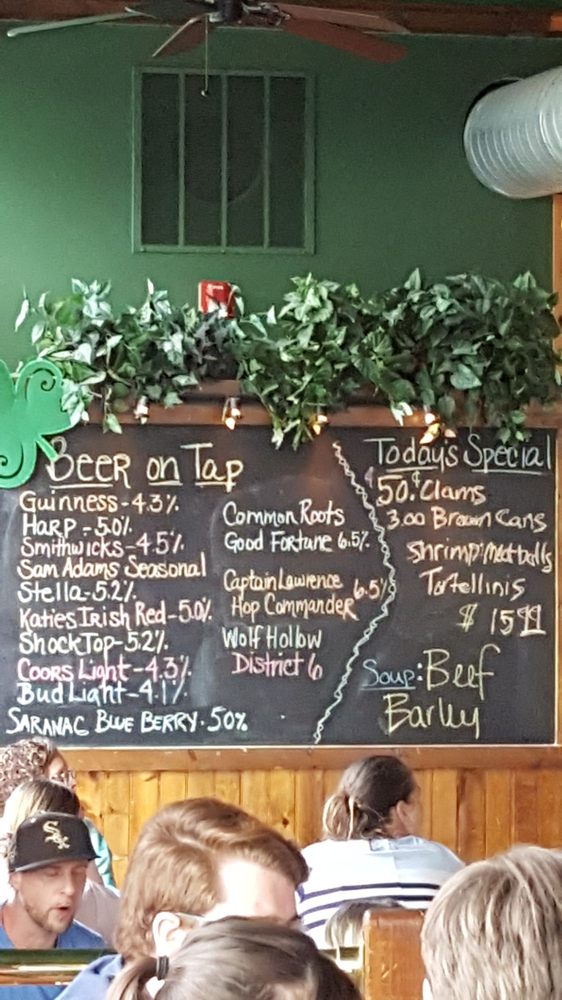 Beer on Tap
Guinness - 4.3%
Harp - 5.0%
Smithwicks - 4.5%
Sam Adams Seasonal
Stella - 5.2%
Katies Irish Red - 5.0%
Shock Top - 5.2%
Coors Light - 4.3%
Bud Light - 4.1%
Saranac Blue Berry - 50%
Common Roots
Good Fortune 6.5%
Captain Lawrence 6.5%
Hop Commander
Wolf Hollow
District 6
Today's Special
50¢ Clams
3.00 Brown Cans
Shrimp: Meatballs
Tortellinis
$ 15.99
Soup: Beef
Barley
Sox